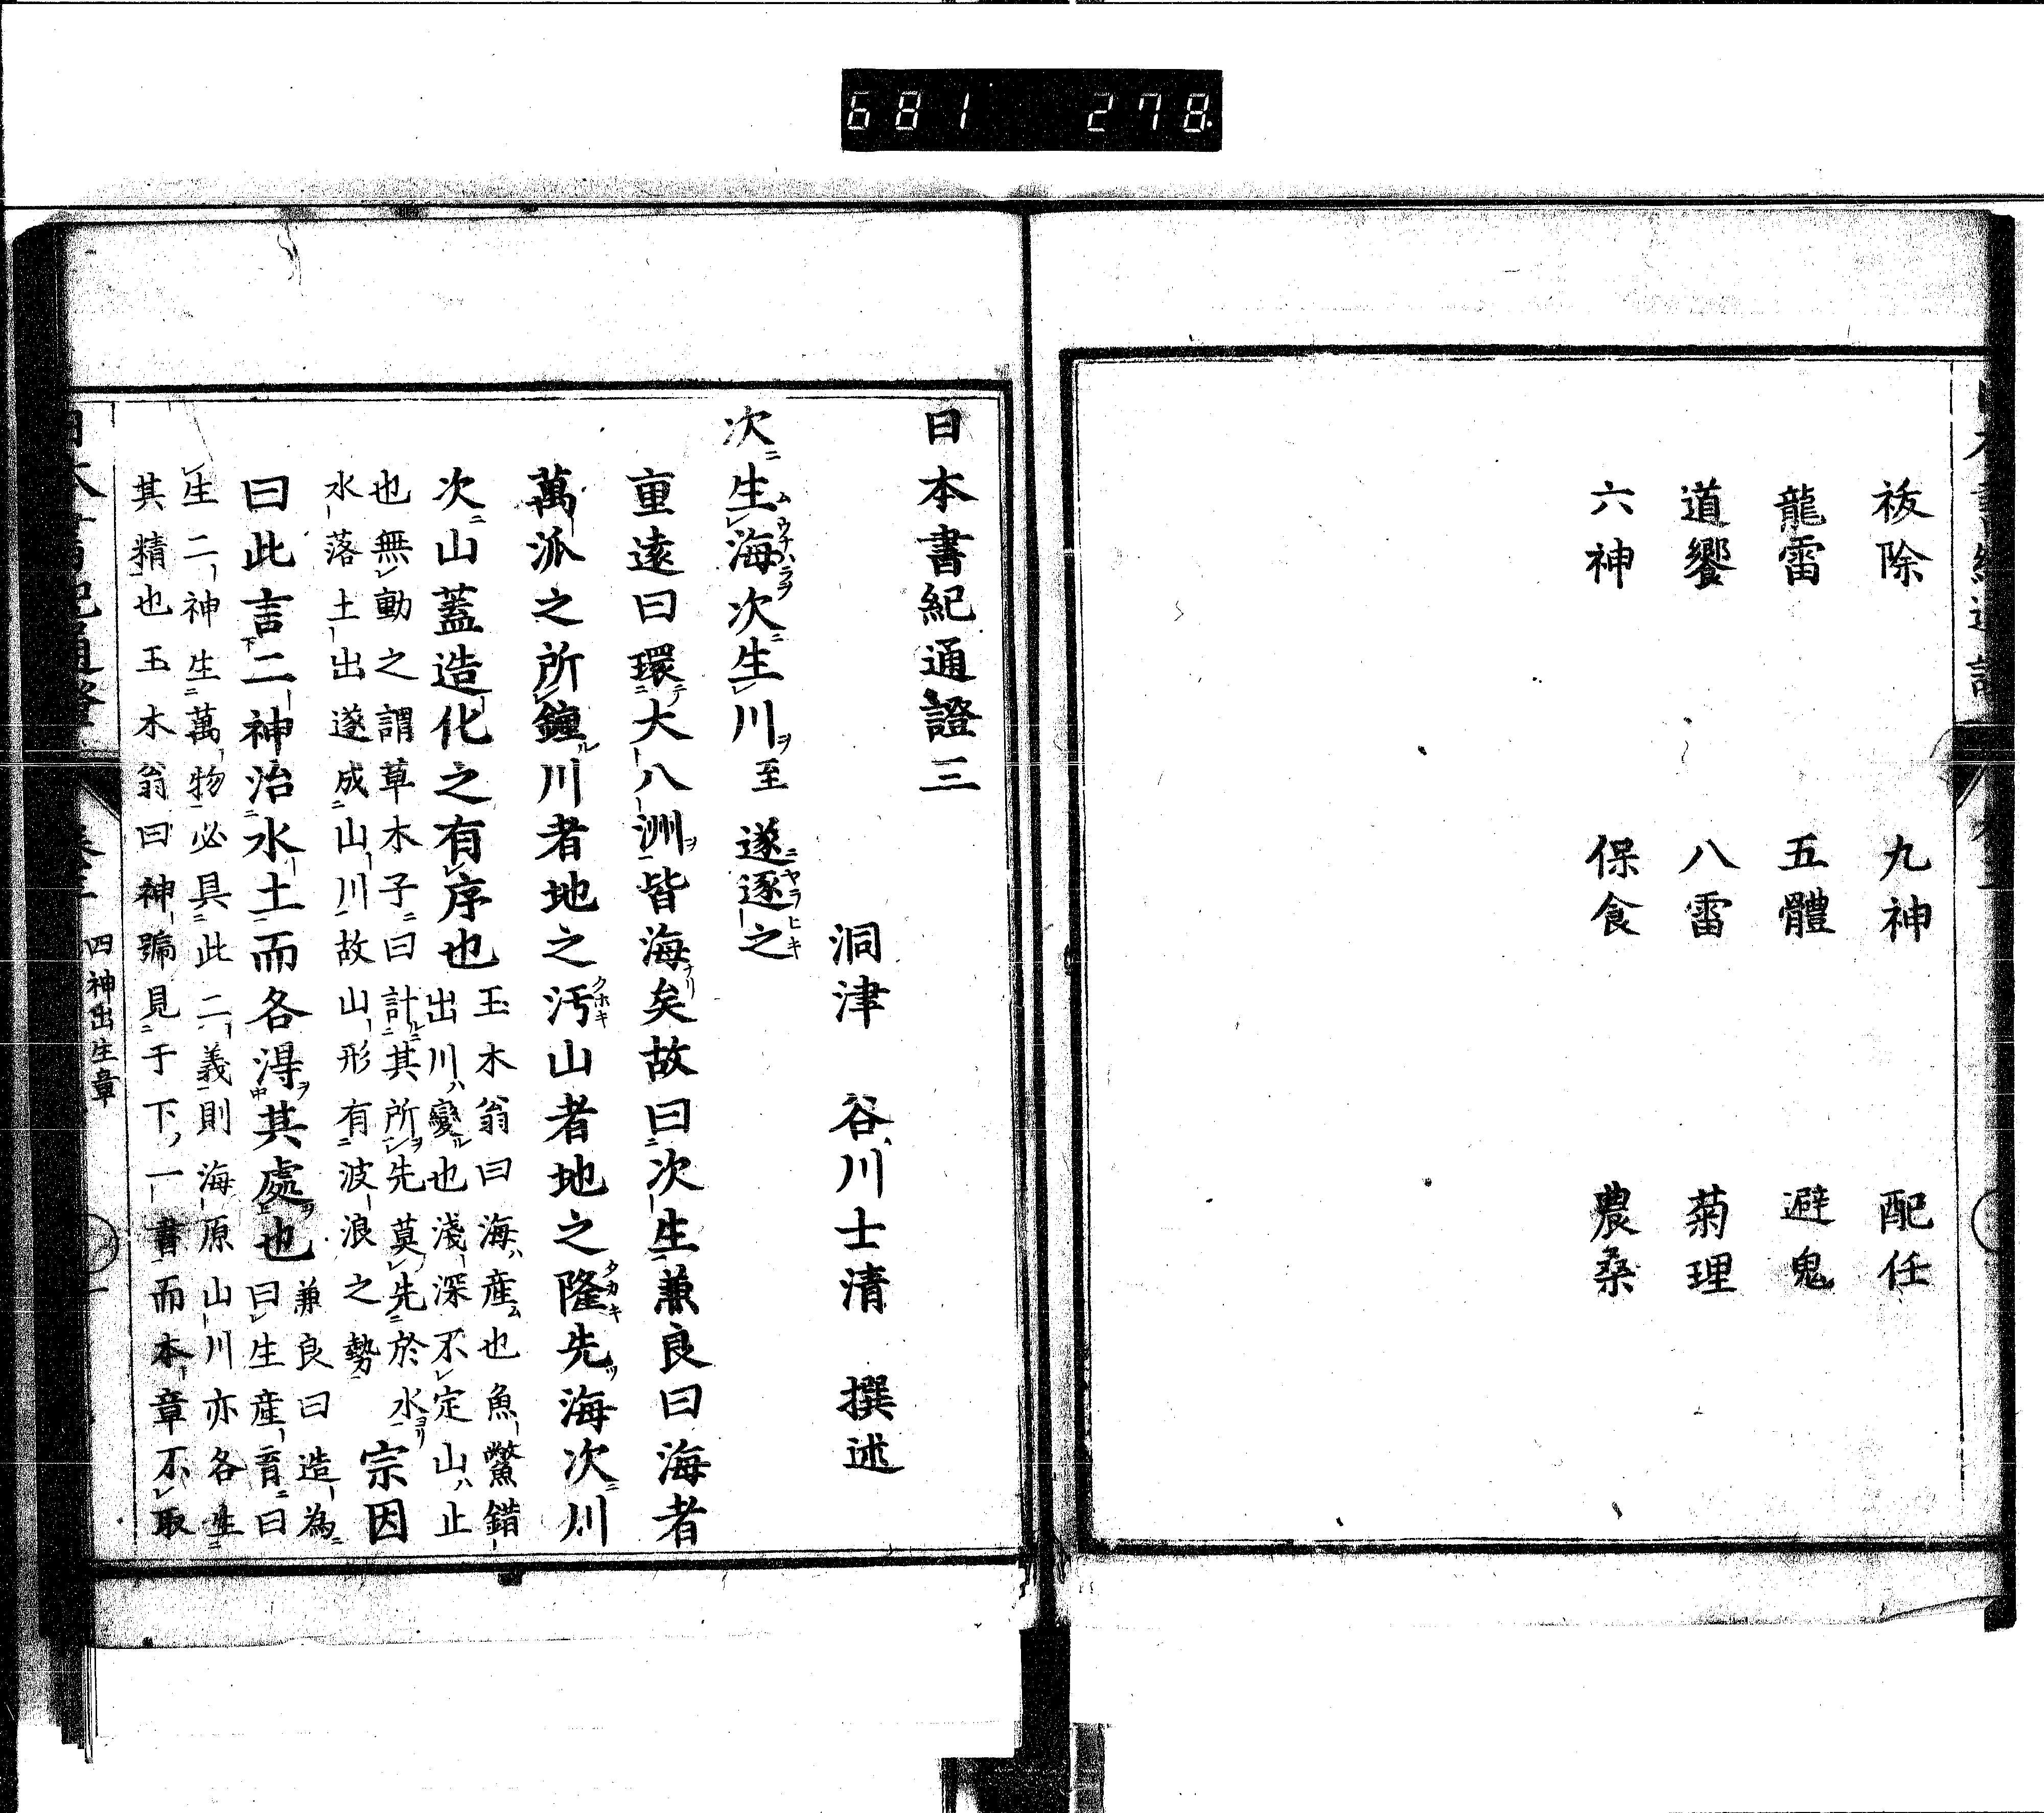 681 278
祓除 九神 配任
龍雷 五體 避鬼
道饗 八雷 菊理
六神 保食 農桑
日本書紀通證三
洞津 谷川士清 撰述
次生海次生川至遂逐之
重遠曰環大八洲皆海矣故曰次生兼良曰海者
萬派之所鐘川者地之汚山者地之隆先海次川
次山蓋造化之有序也
玉木翁曰海産也魚鱉錯
出川變也淺深不定山止
也無動之謂草木子曰計其所先莫先於水
水落土出遂成山川故山形有波浪之勢
宗因
曰此言二神治水土而各得其處也
兼良曰造為
曰生産育曰
生二神生萬物必具此二義則海原山川亦各生
其精也玉木翁曰神號見于下一書而本章不取
四神出生章